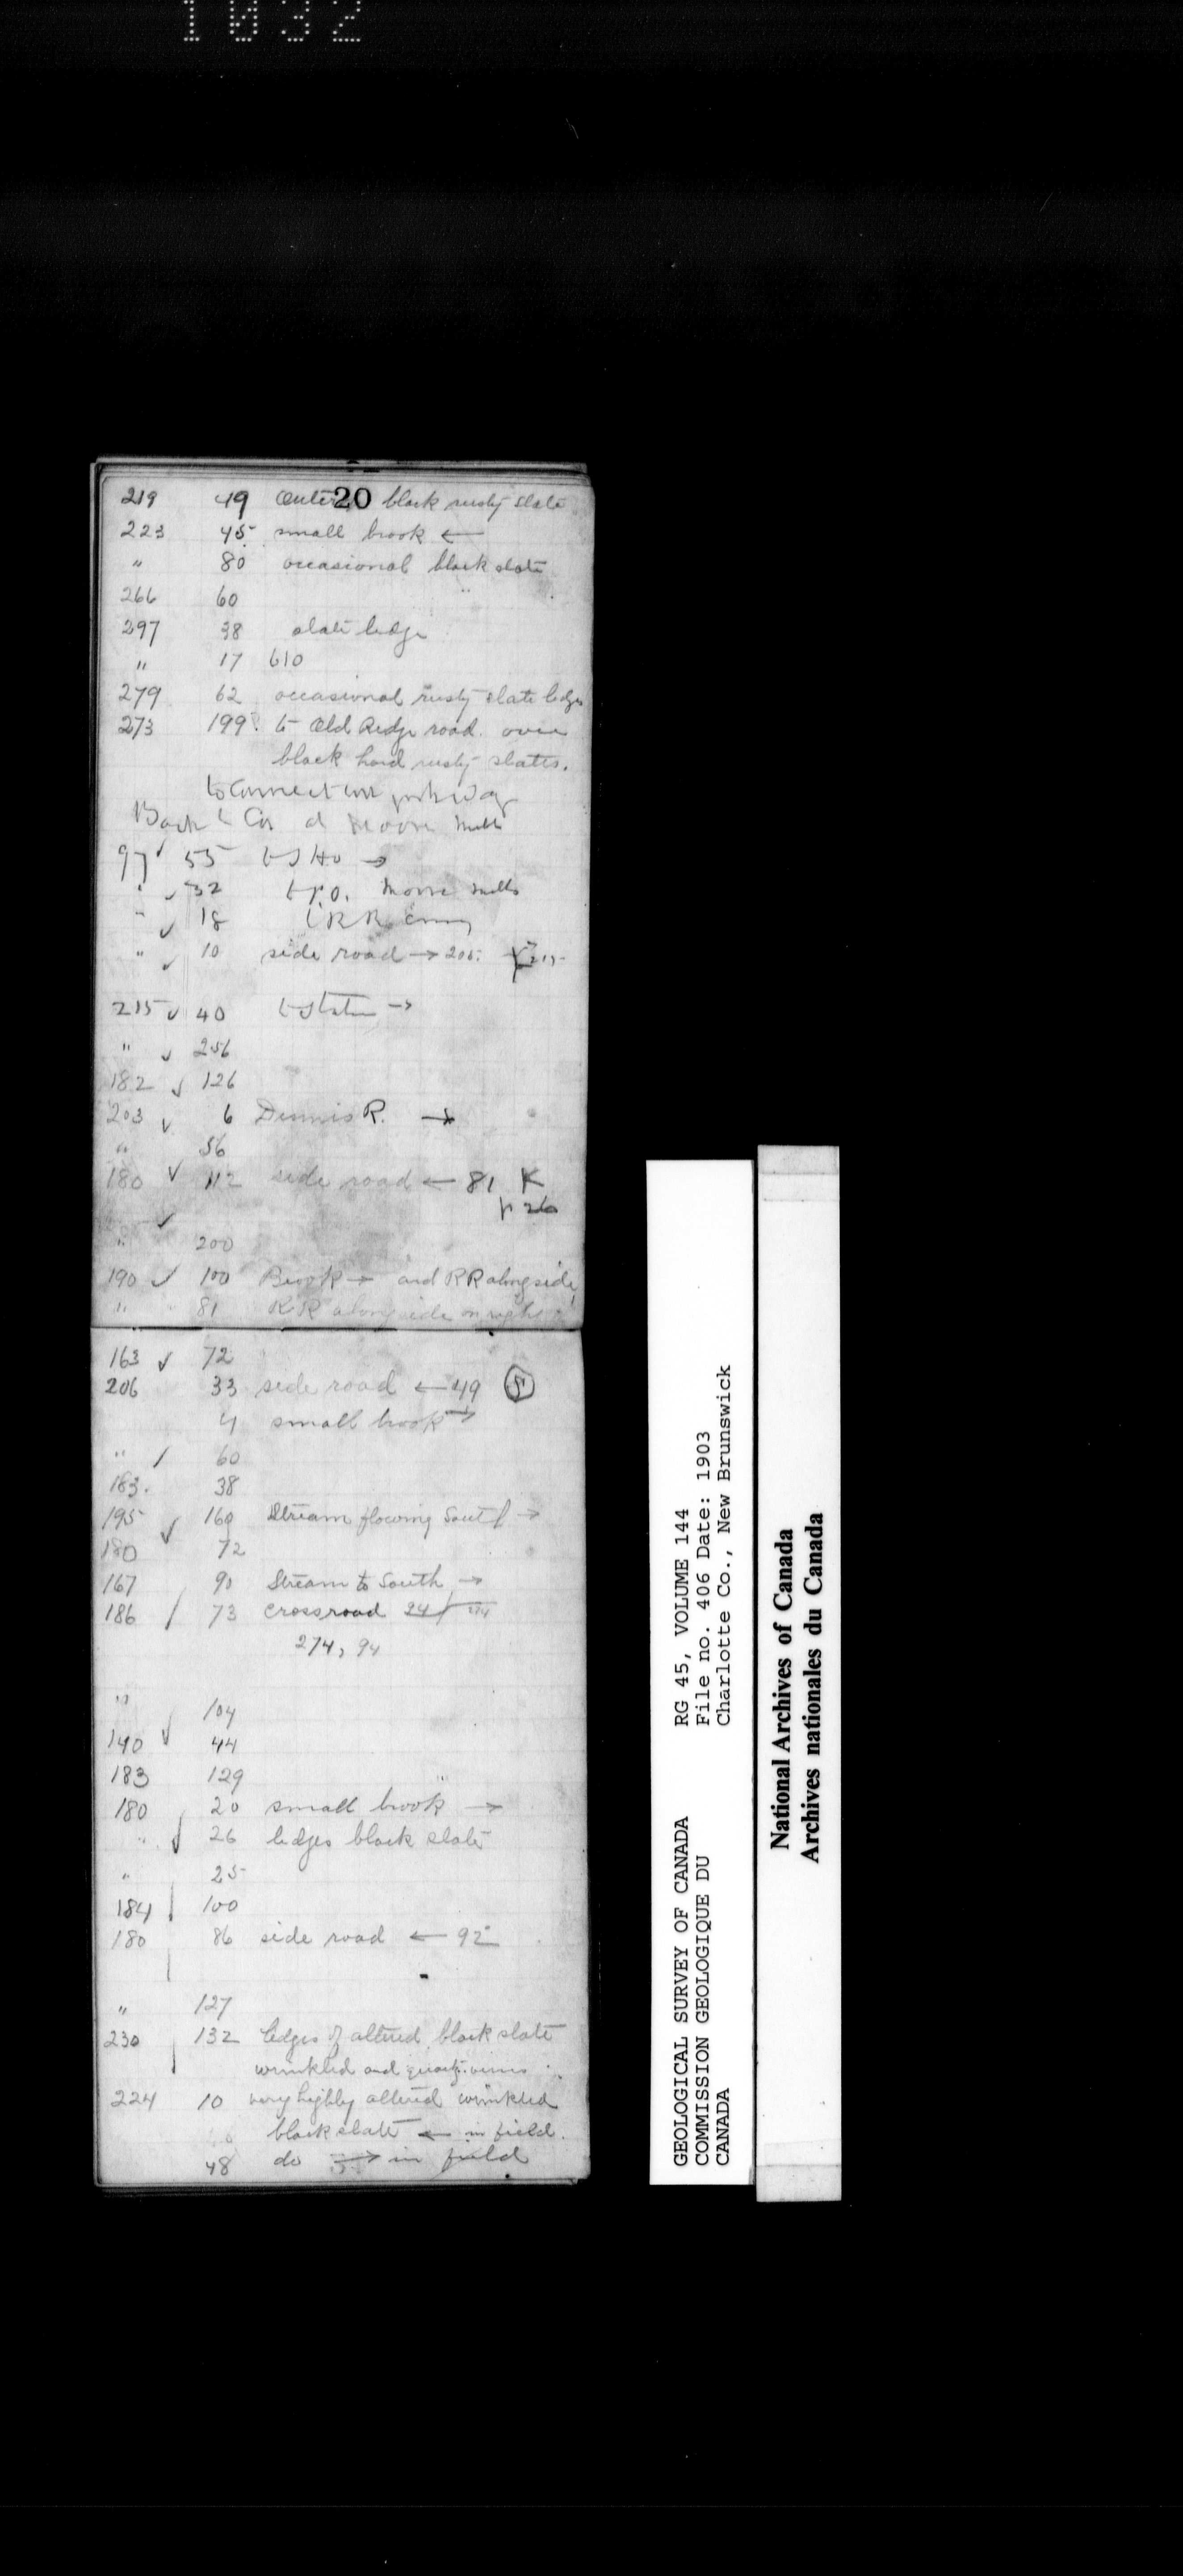 1032
20
219 49 black rusty slate
223 45 small brook ←
" 80 occasional black slate
266 60 "
297 38 slate ledge
" 17 610
279 62 occasional rusty slate ledges
273 199 to Old Ridge road over
black hard rusty slates.
to connect with
Back to Cor at Moore Mills
97 ✓ 55 →
" ✓ 32 P.O. Moore Mills
" ✓ 18 RR
" ✓ 10 side road → 205
215 ✓ 40 to Station →
" ✓ 256
182 ✓ 126
203 ✓ 6 Dennis R. →
" 56
180 ✓ 112 side road ← 81 K
p 26
" ✓ 200
190 ✓ 100 Brook → and RR alongside
" 81 RR alongside on right
163 ✓ 72
206 33 side road ← 49 5
4 small brook →
" ✓ 60
183. 38
195 160 Stream flowing South →
180 ✓ 72
167 90 Stream to South →
186 / 73 crossroad 94 274
274, 94
" 104
140 ✓ 44
183 129
180 20 small brook →
" ✓ 26 ledges black slate
" 25
184 100
180 86 side road ← 92
" 127
230 132 ledges of altered black slate
wrinkled and quartz veins
224 10 very highly altered wrinkled
black slate ← in field.
48 do → in field
GEOLOGICAL SURVEY OF CANADA RG 45, VOLUME 144
COMMISSION GEOLOGIQUE DU File no. 406 Date: 1903
CANADA Charlotte Co., New Brunswick
National Archives of Canada
Archives nationales du Canada